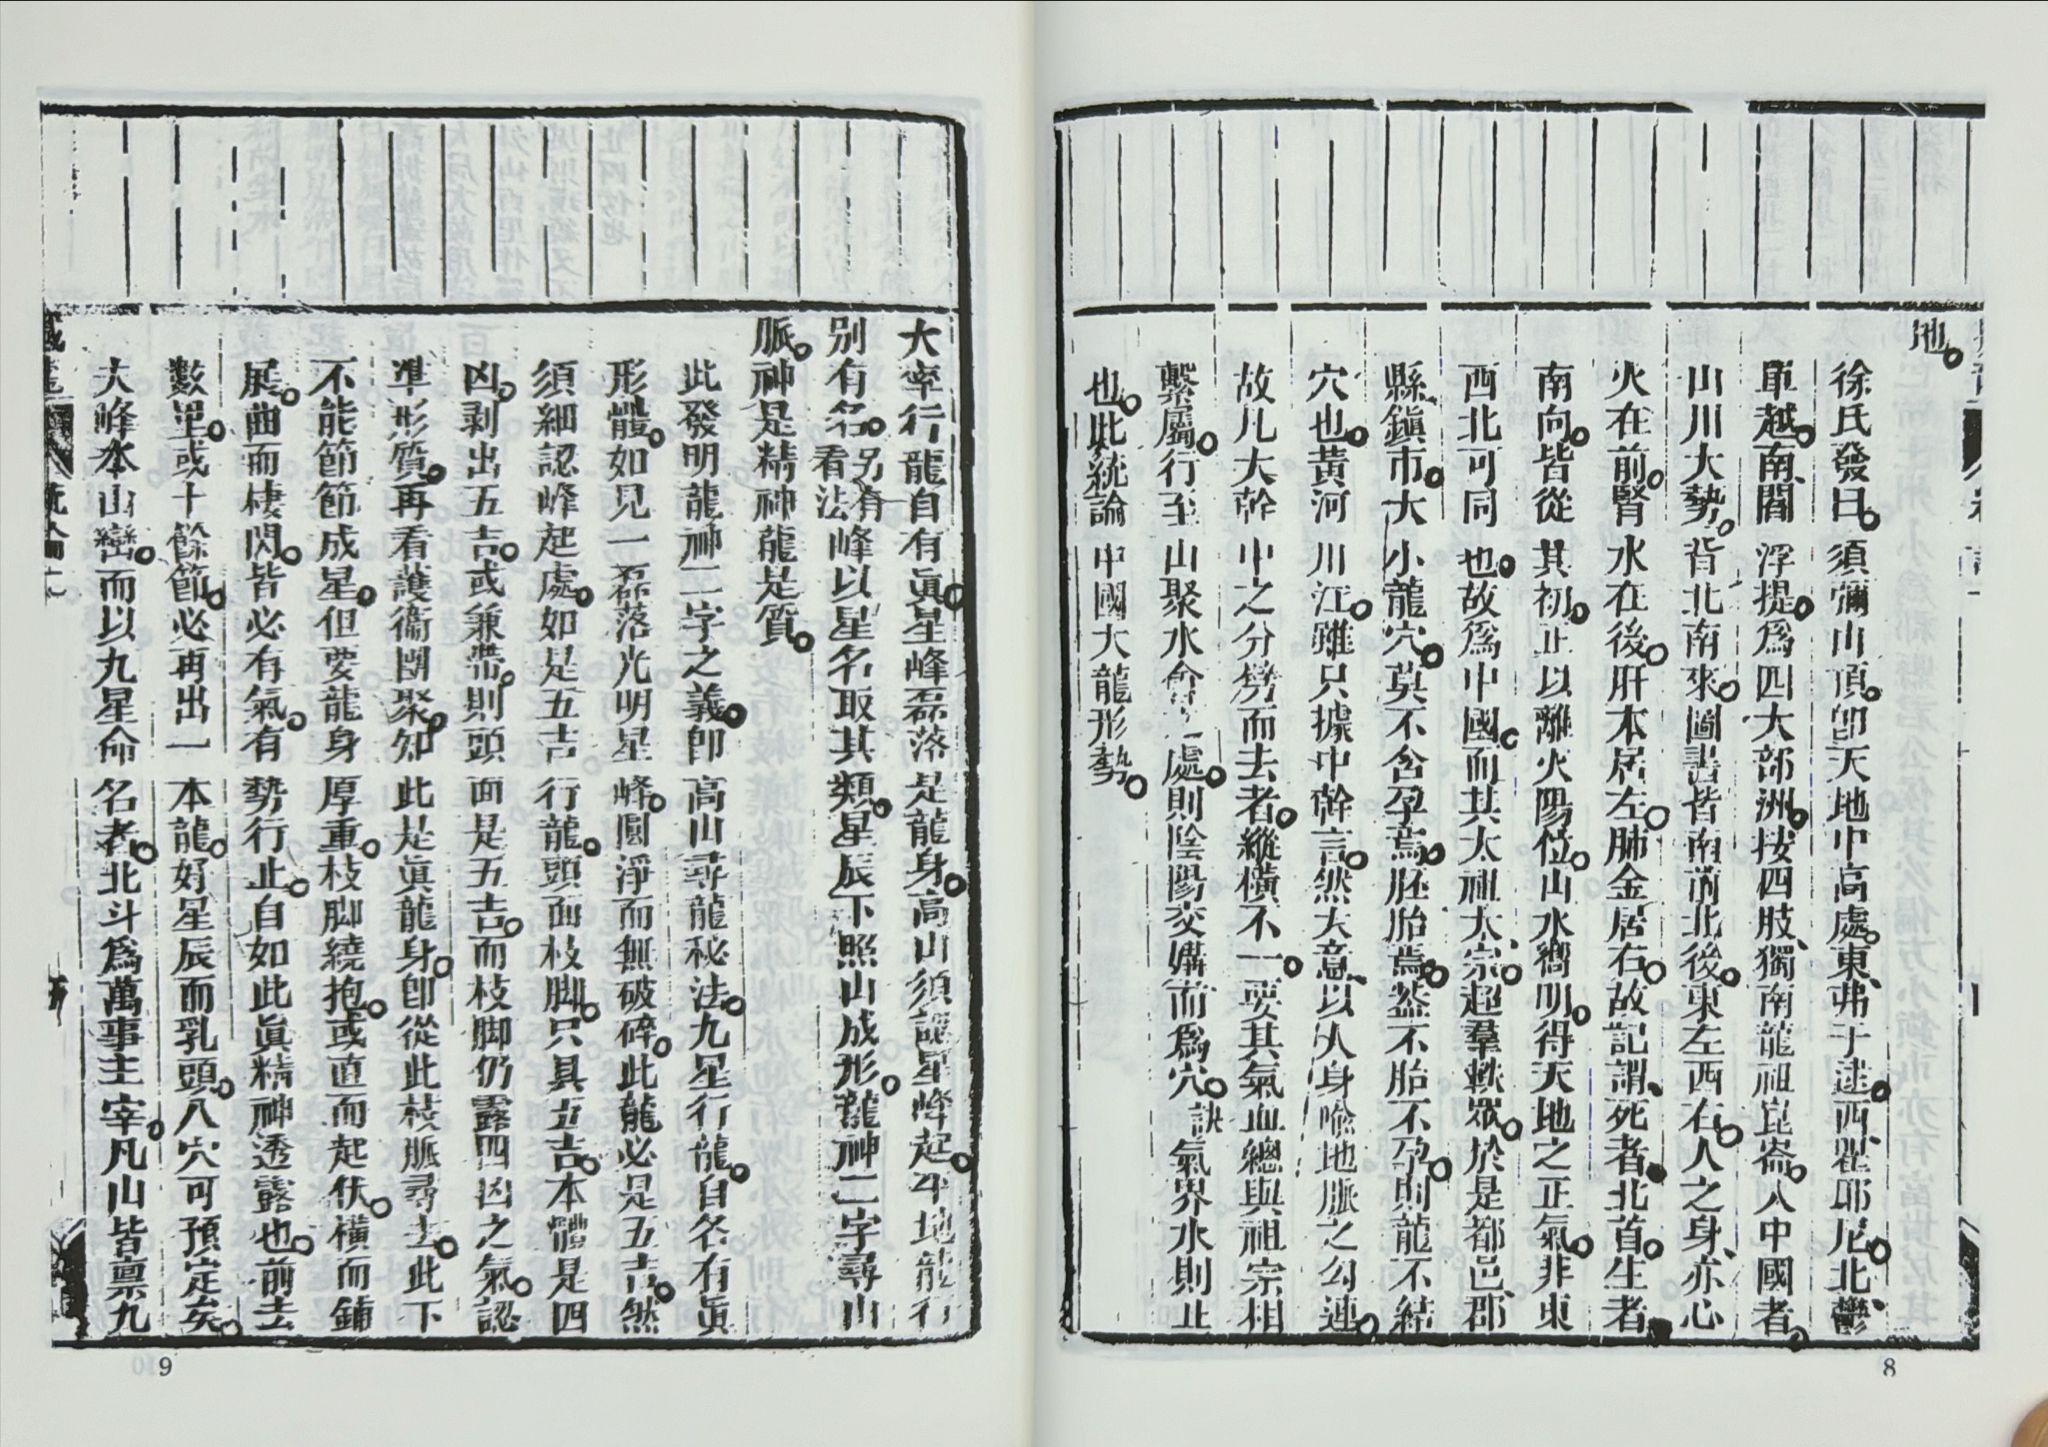 地
徐氏發曰須彌山頂卽天地中高處東弗于逮西瞿耶尼北鬱
單越南閻浮提爲四大部洲按四肢獨南龍祖崑崙入中國者
山川大勢背北南來圖書皆南前北後東左西右人之身亦心
火在前腎水在後肝木居左肺金居右故記謂死者北首生者
南向皆從其初正以離火陽位山水嚮明得天地之正氣非東
西北可同也故爲中國而其太祖太宗超羣軼眾於是都邑郡
縣鎭市大小龍穴莫不含孕焉胚胎焉葢不胎不孕則龍不結
穴也黃河川江雖只據中幹言然大意以人身喻地脈之勾連
故凡大幹中之分劈而去者縱橫不一要其氣血總與祖宗相
繫屬行至山聚水會之處則陰陽交媾而爲穴訣氣界水則止
也此統論中國大龍形勢
8
大率行龍自有眞星峰磊落是龍身高山須認星峰起平地龍行
別有名另有看法峰以星名取其類星辰下照山成形龍神二字尋山
脈神是精神龍是質
此發明龍神二字之義卽高山尋龍秘法九星行龍自各有眞
形體如見一磊落光明星峰圓淨而無破碎此龍必是五吉然
須細認峰起處如是五吉行龍頭面枝脚只具五吉本體是四
凶剥出五吉或兼帶則頭面是五吉而枝脚仍露四凶之氣認
準形質再看護衞團聚如此是眞龍身卽從此枝脈尋去此下
不能節節成星但要龍身厚重枝脚繞抱或直而起伏橫而鋪
展曲而棲閃皆必有氣有勢行止自如此眞精神透露也前去
數里或十餘節必再出一本龍好星辰而乳頭八穴可預定矣
大峰本山巒而以九星命名者北斗爲萬事主宰凡山皆禀九
9